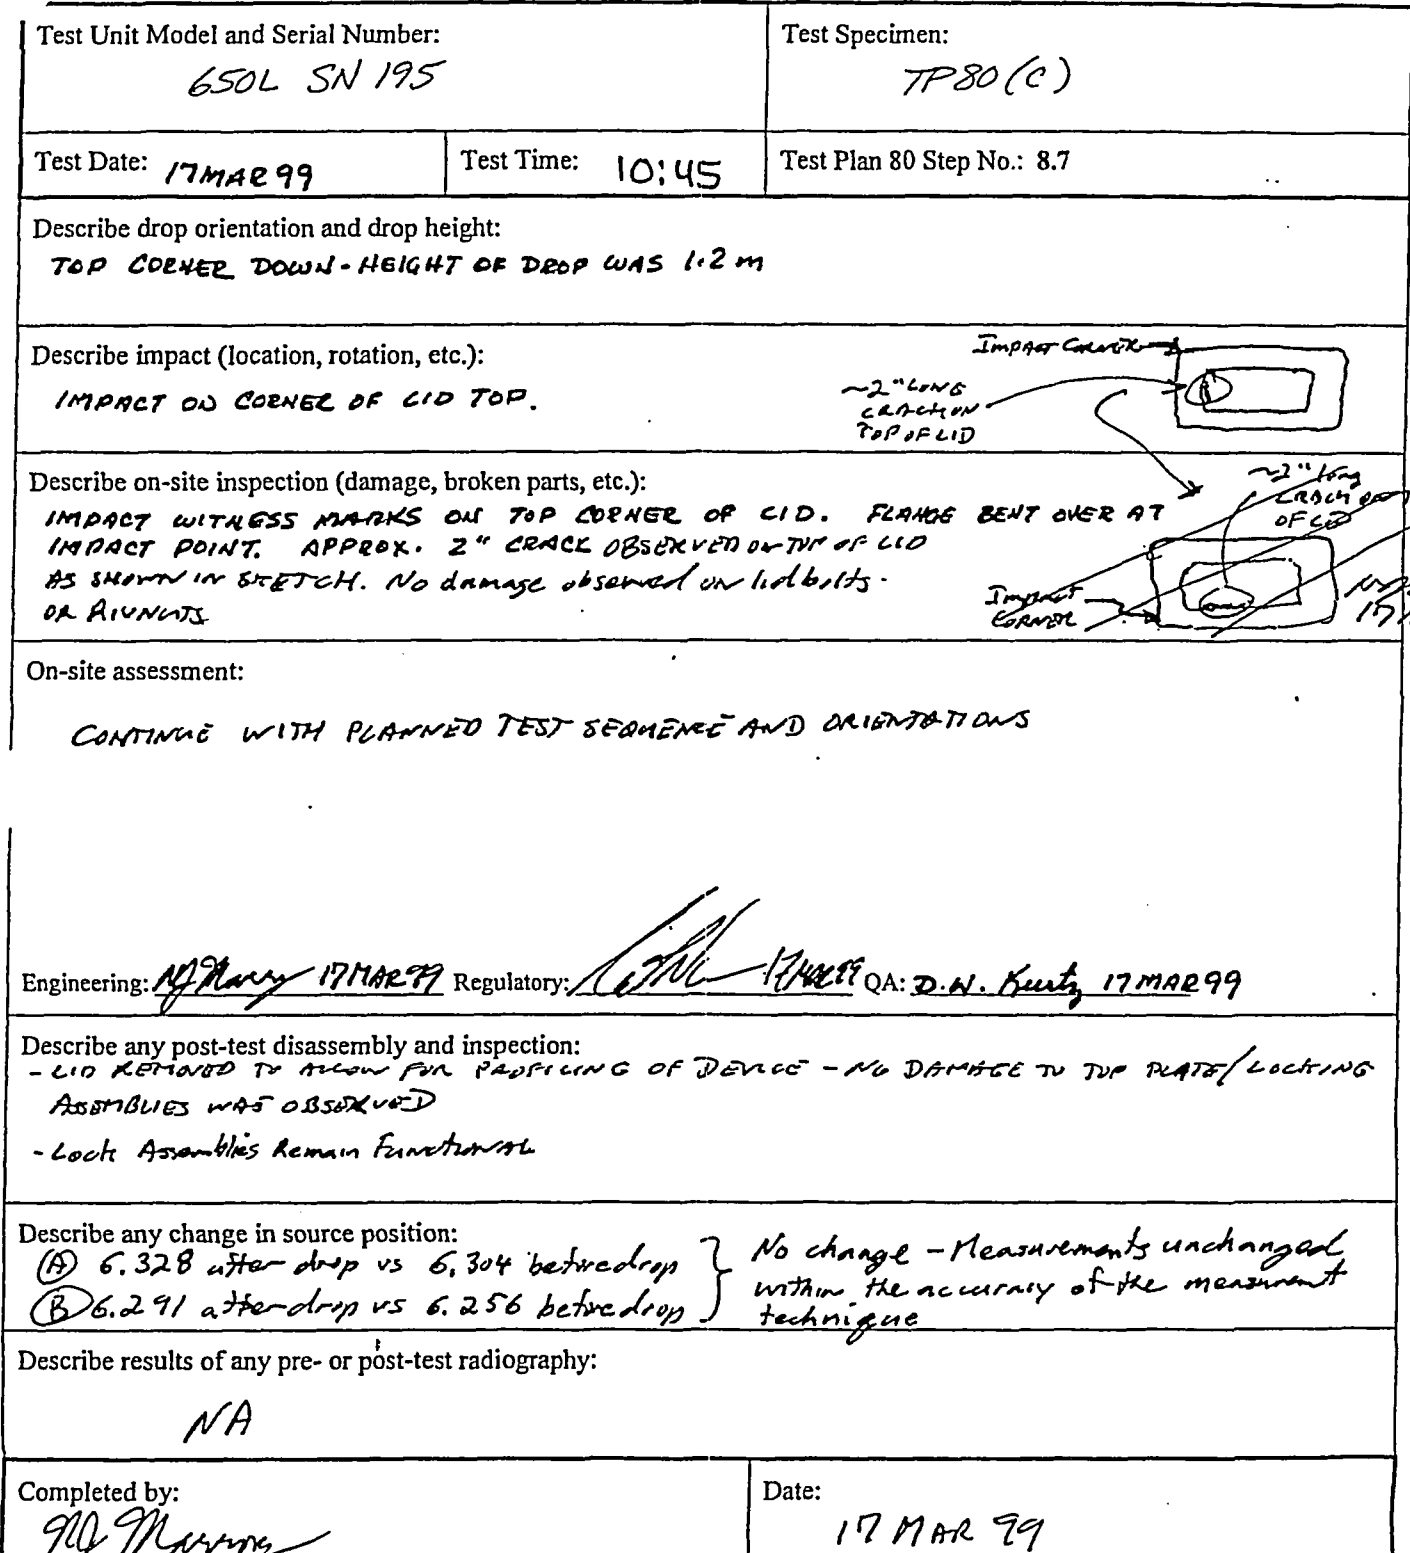 Test Unit Model and Serial Number:
650L SN 195
Test Specimen:
TP80(C)
Test Date: 17MAR99
Test Time: 10:45
Test Plan 80 Step No.: 8.7
Describe drop orientation and drop height:
TOP CORNER DOWN - HEIGHT OF DROP WAS 1.2 m
Describe impact (location, rotation, etc.):
IMPACT ON CORNER OF LID TOP.
IMPACT CORNER
~2" LONG
CRACK ON
TOP OF LID
Describe on-site inspection (damage, broken parts, etc.):
IMPACT WITNESS MARKS ON TOP CORNER OF LID. FLANGE BENT OVER AT
IMPACT POINT. APPROX. 2" CRACK OBSERVED ON TOP OF LID
AS SHOWN IN SKETCH. No damage observed on lid bolts
OR RIVNUTS
~2" long
CRACK
OF LID
Impact
CORNER
17
On-site assessment:
CONTINUE WITH PLANNED TEST SEQUENCE AND ORIENTATIONS
Engineering: 17MAR99 Regulatory: 17MAR99 QA: D.W. Kurtz 17MAR99
Describe any post-test disassembly and inspection:
- LID REMOVED TO ALLOW FOR PROFILING OF DEVICE - NO DAMAGE TO TOP PLATE/LOCKING
ASSEMBLIES WAS OBSERVED
- Lock Assemblies Remain Functional
Describe any change in source position:
(A) 6.328 after drop vs 6.304 before drop
(B) 6.291 after drop vs 6.256 before drop
No change - Measurements unchanged
within the accuracy of the measurement
technique
Describe results of any pre- or post-test radiography:
NA
Completed by:
Date:
17 MAR 99